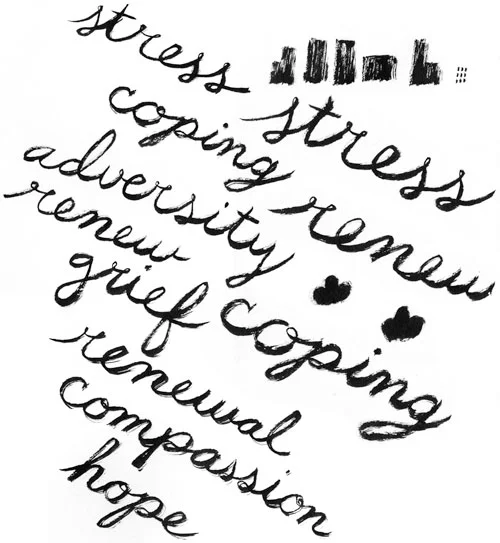 stress
stress
coping
renew
adversity
renew
coping
grief
renewal
compassion
hope